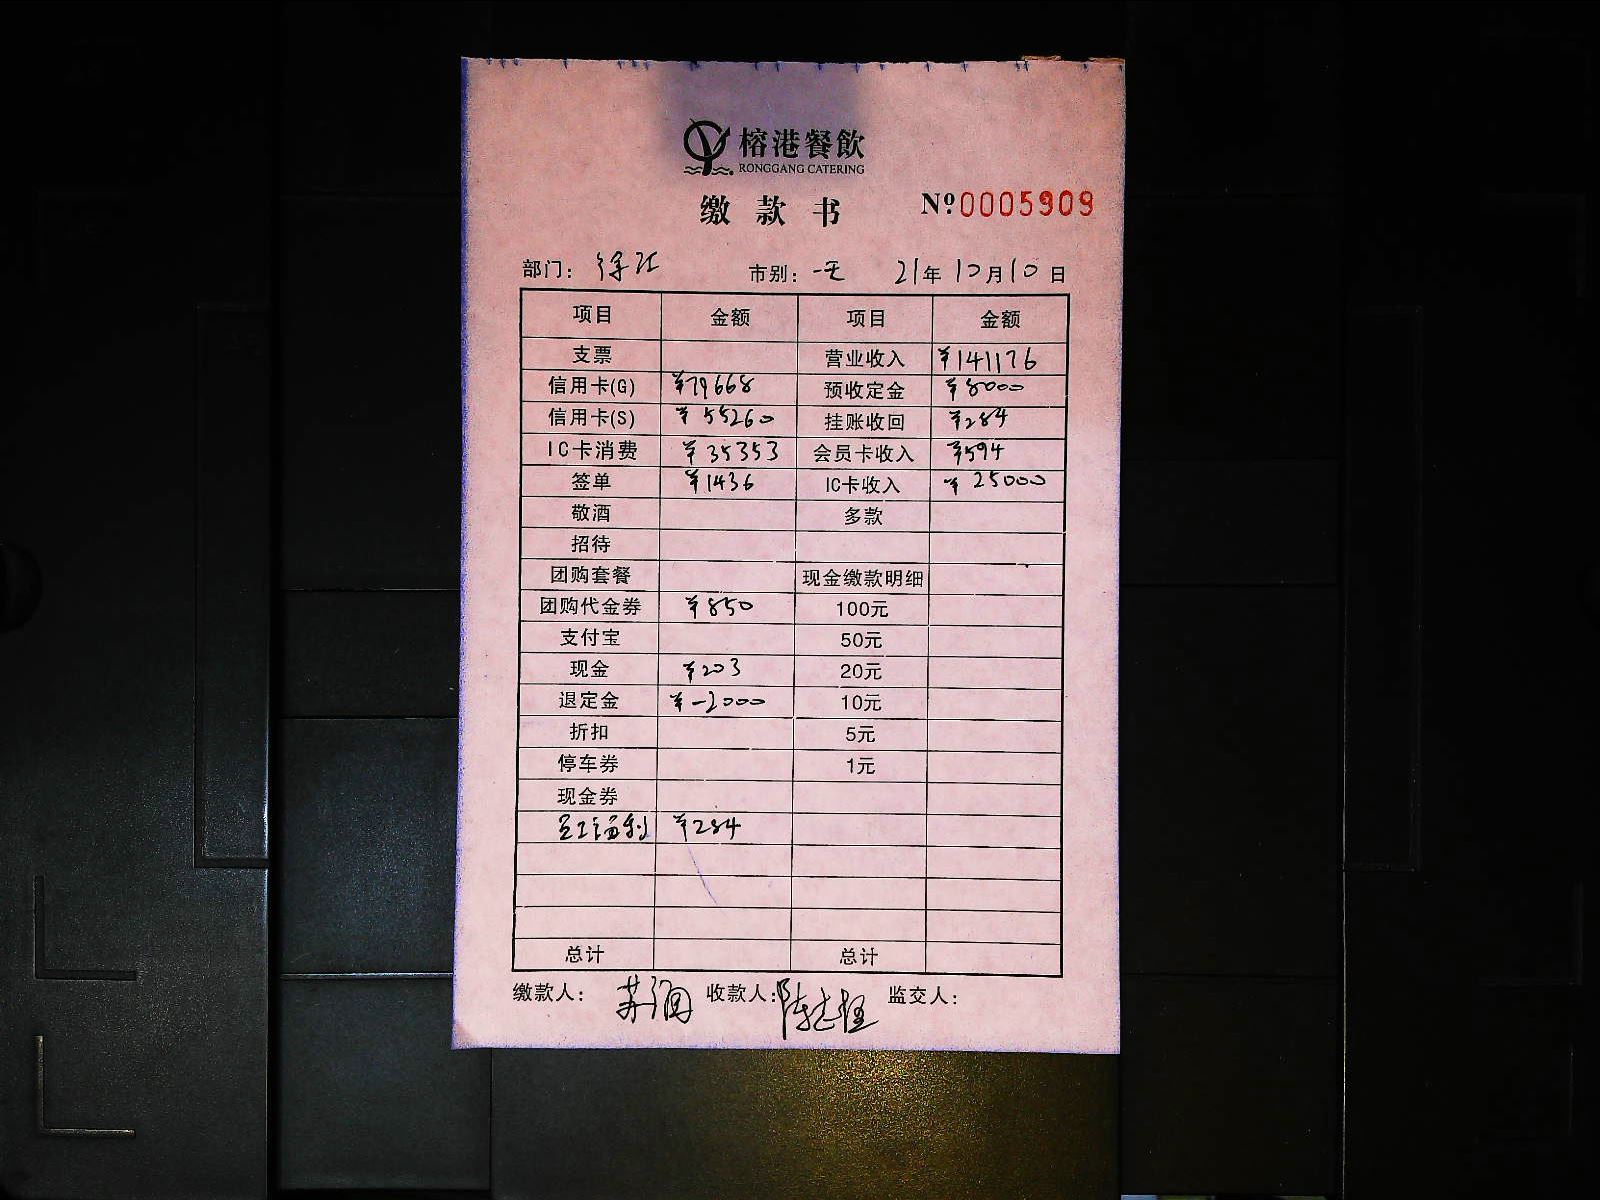 榕港餐飲
RONGGANG CATERING
缴款书
Nº0005909
部门：徐汇 市别：一天 21年10月10日
项目 金额 项目 金额
支票 营业收入 ¥141176
信用卡(G) ¥79668 预收定金 ¥8000
信用卡(S) ¥55260 挂账收回 ¥284
IC卡消费 ¥35353 会员卡收入 ¥594
签单 ¥1436 IC卡收入 ¥25000
敬酒 多款
招待
团购套餐 现金缴款明细
团购代金券 ¥850 100元
支付宝 50元
现金 ¥203 20元
退定金 ¥-2000 10元
折扣 5元
停车券 1元
现金券
员工福利 ¥284
总计 总计
缴款人： 收款人： 监交人：